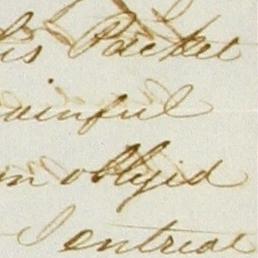 his Packet
ainful
m obliged
I entreat